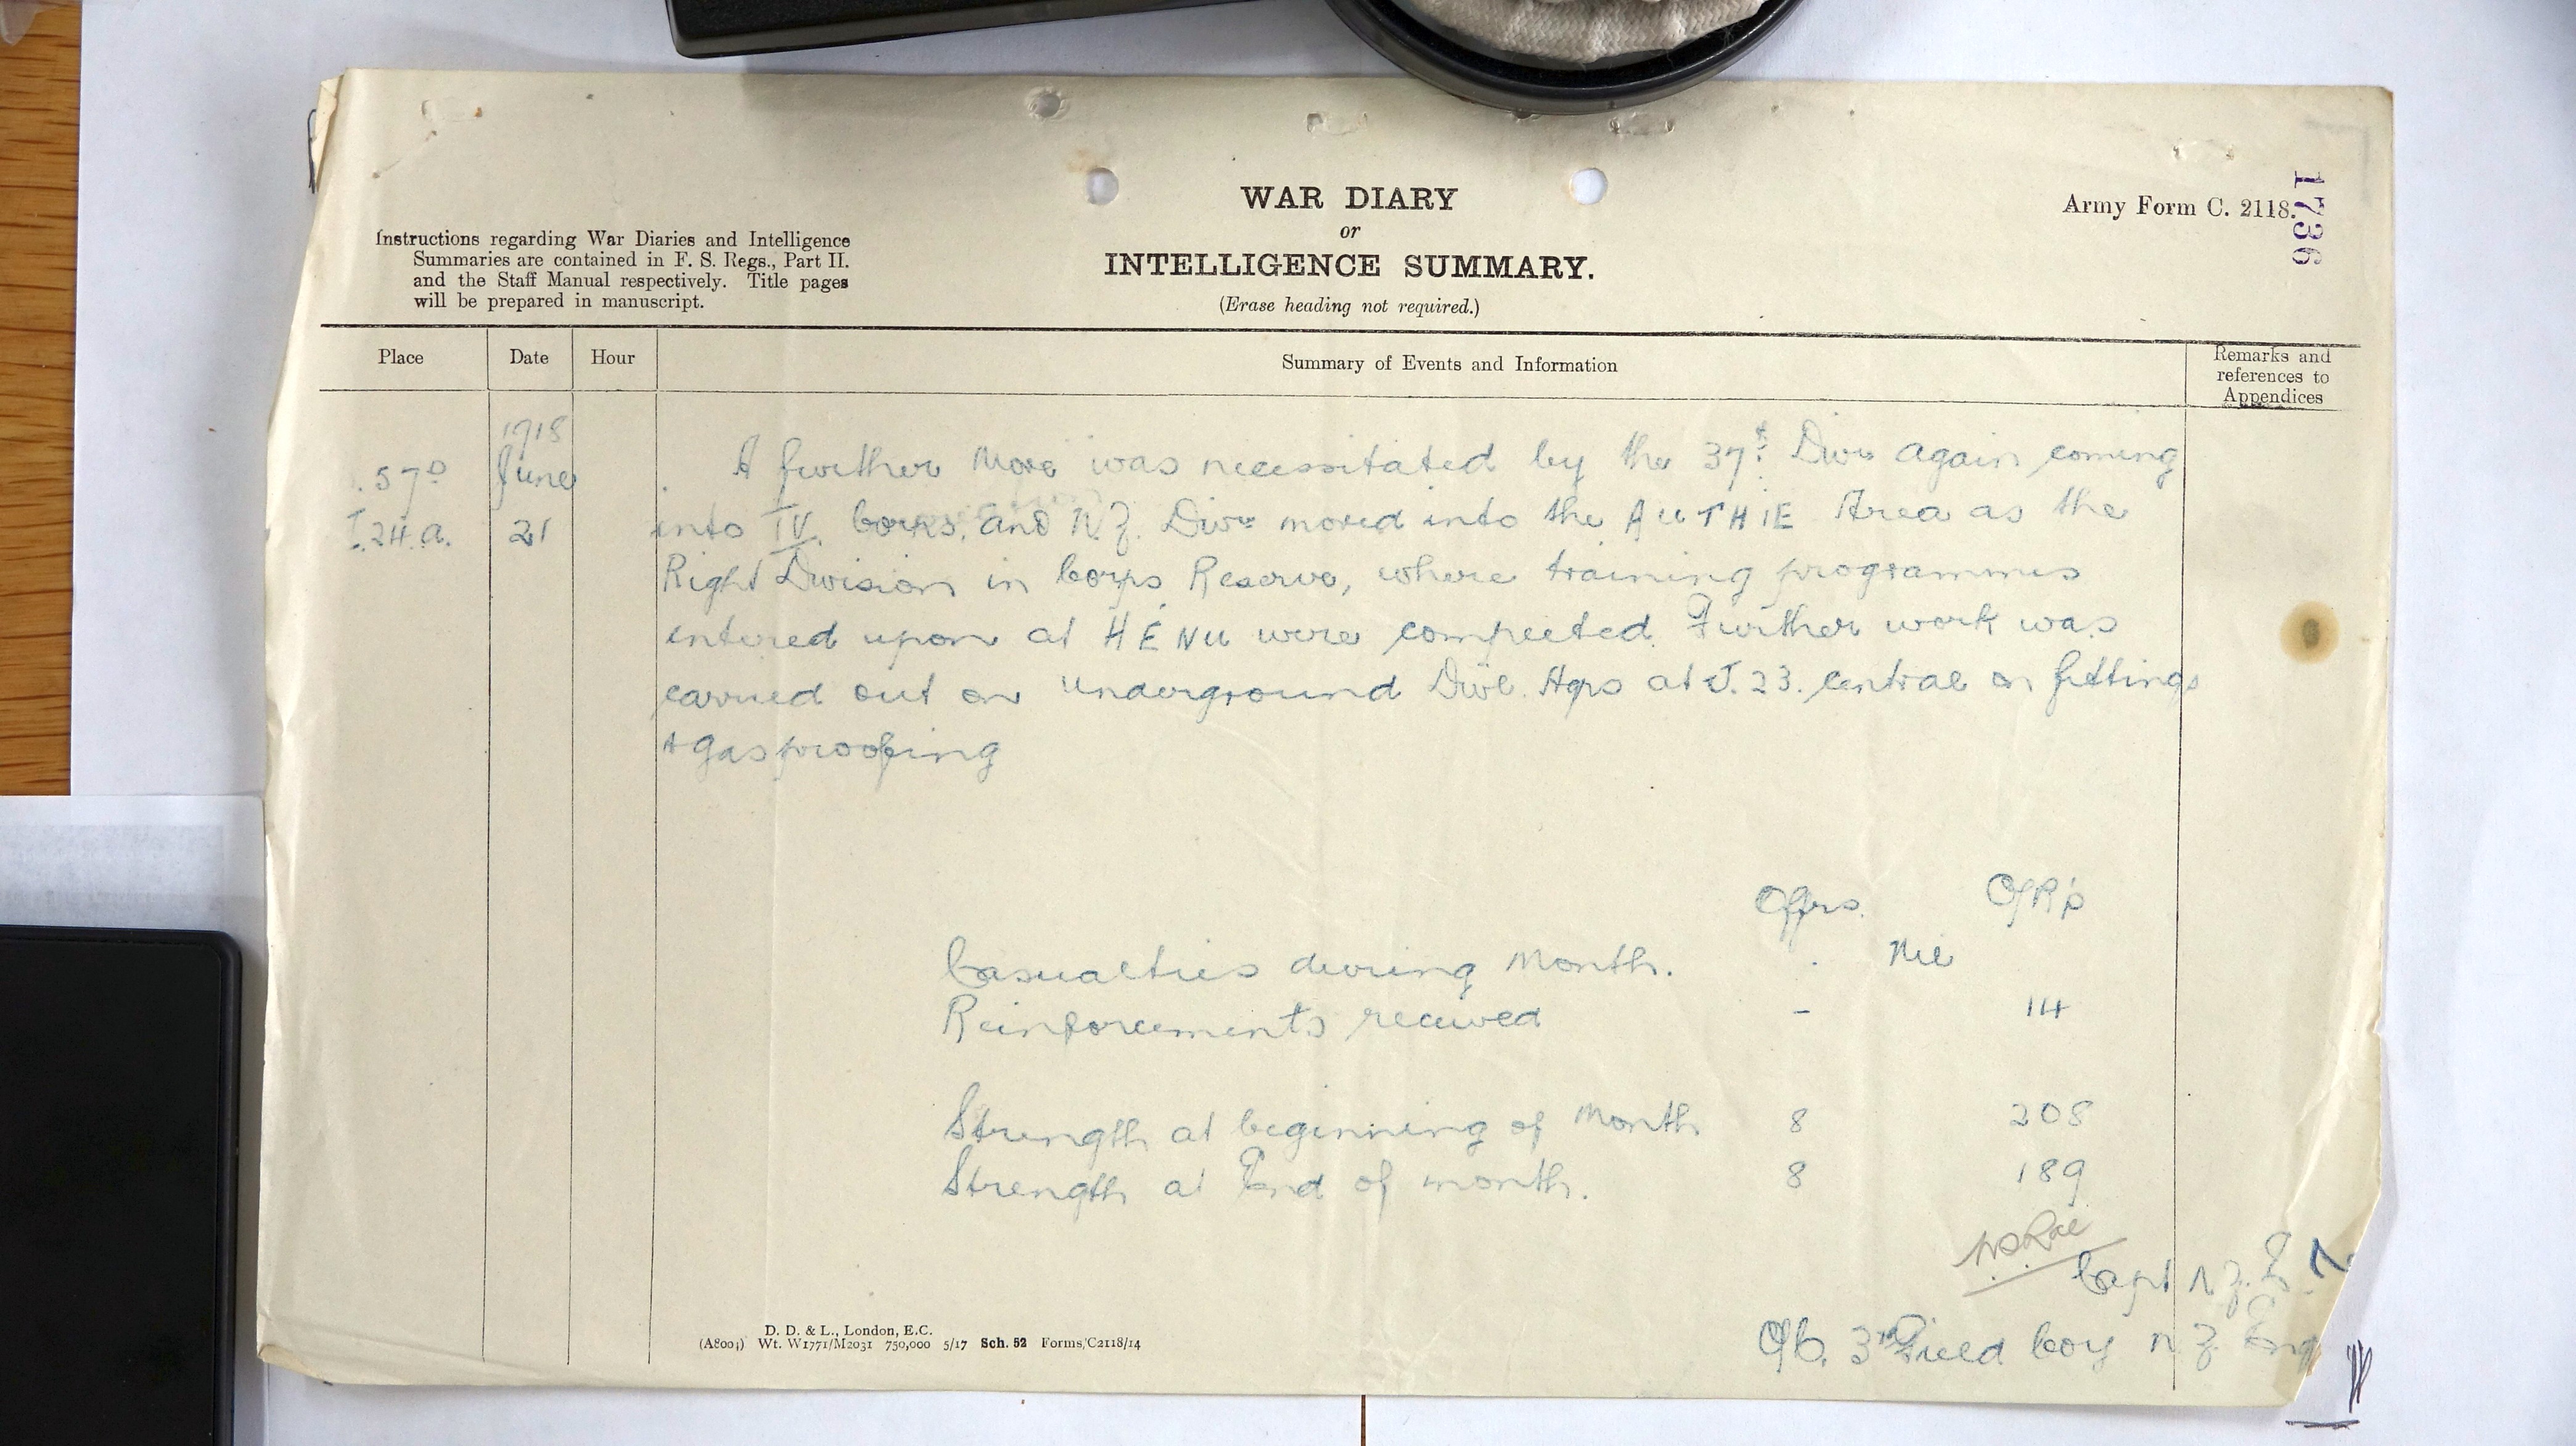 WAR DIARY
or
INTELLIGENCE SUMMARY.
(Erase heading not required.)
Army Form C. 2118.
1736
Instructions regarding War Diaries and Intelligence
Summaries are contained in F. S. Regs., Part II.
and the Staff Manual respectively. Title pages
will be prepared in manuscript.
Place Date Hour Summary of Events and Information Remarks and
references to
Appendices
1918
57D June A further Move was necessitated by the 37t Divn again coming
I.24.a. 21 into IV. Corps. and N.Z. Divn moved into the AUTHIE Area as the
Right Division in Corps Reserve, where training programmes
entered upon at HÉNU were completed. Further work was
carried out on underground Divl. Hqrs at J.23. central on fittings
+ gasproofing
Offrs. O/R's
Casualties during Month. Nil
Reinforcements received - 14
Strength at beginning of Month 8 208
Strength at End of month. 8 189
Capt N.Z.E.
O/C. 3rd Field Coy N.Z. Eng
D. D. & L., London, E.C.
(A8004) Wt. W1771/M2031 750,000 5/17 Sch. 52 Forms/C2118/14